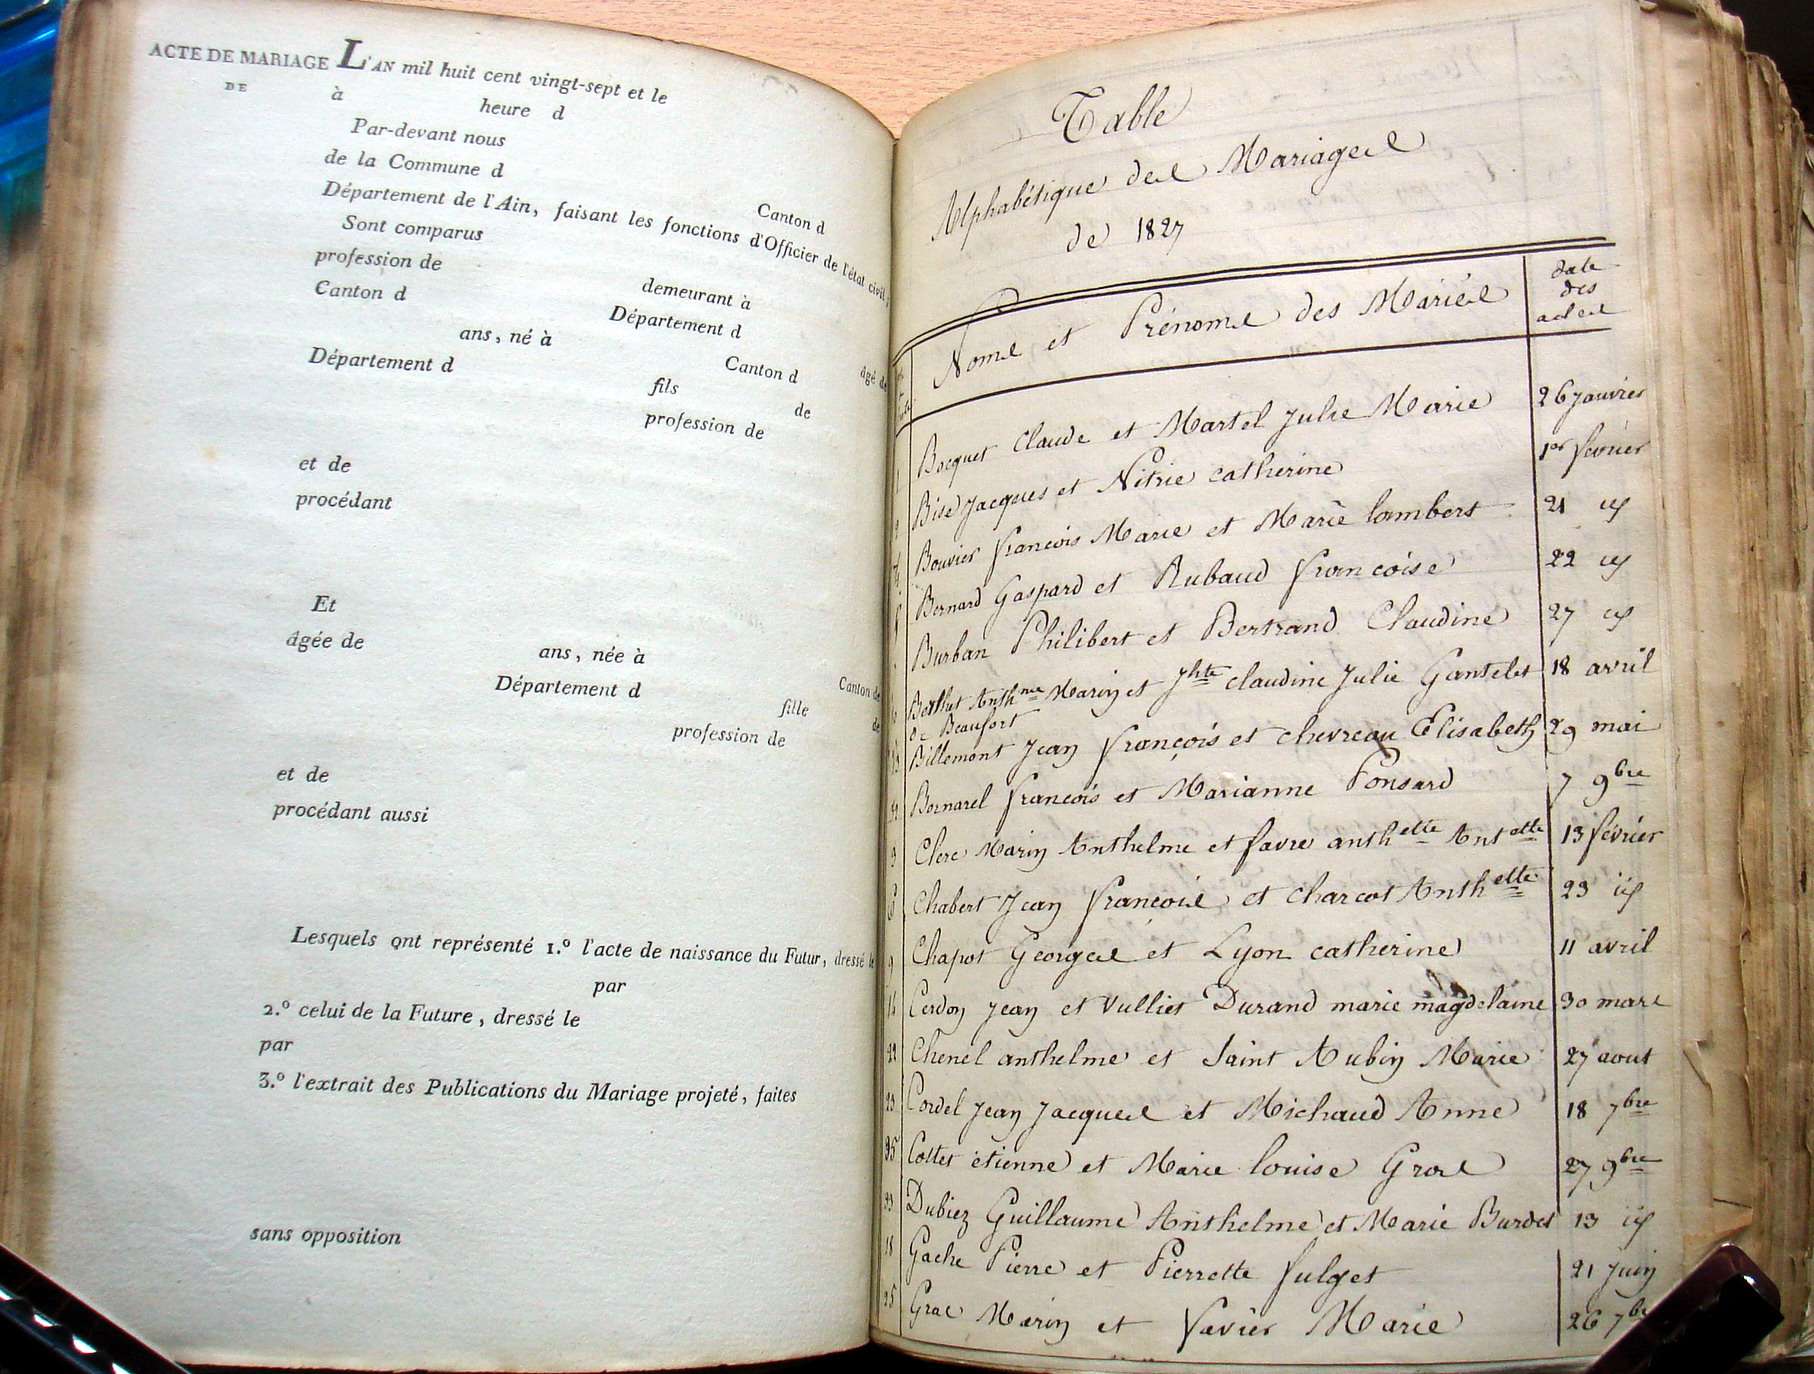 ACTE DE MARIAGE L'AN mil huit cent vingt-sept et le
DE à heure d
Par-devant nous
de la Commune d Canton d
Département de l'Ain, faisant les fonctions d'Officier de l'état civil,
Sont comparus
profession de demeurant à
Canton d Département d âgé de
ans, né à Canton d
Département d fils de
profession de
et de
procédant
Et
âgée de ans, née à Canton de
Département d fille de
profession de
et de
procédant aussi
Lesquels ont représenté 1.º l'acte de naissance du Futur, dressé le
par
2.º celui de la Future, dressé le
par
3.º l'extrait des Publications du Mariage projeté, faites
sans opposition
Table
Alphabétique des Mariages
de 1827
Noms et Prénoms des Mariés date des actes
Bocquet Claude et Martel Julie Marie 26 Janvier
Bise Jacques et Nitrie catherine 1er février
Bouvier francois Marie et Marie lambert 21 id
Bernard Gaspard et Rubaud francoise 22 id
Burban Philibert et Bertrand Claudine 27 id
Berthet Anthme Marin et Jhte claudine Julie Gantelet 18 avril
de Beaufort
Billemont Jean françois et chevreau Elisabeth 29 mai
Bornarel francois et Marianne Ponsard 7 9bre
9 Clerc Marin Anthelme et favre anthette Antette 13 février
Chabert Jean francois et charcot Anthette 23 id
9 Chapot Georges et Lyon catherine 11 avril
Cerdon Jean et Vulliet Durand marie magdelaine 30 mars
22 Chenel anthelme et Saint Aubin Marie 27 aout
23 Cordel Jean Jacques et Michaud Anne 18 7bre
35 Cottet étienne et Marie louise Gros 27 9bre
33 Dubiez Guillaume Anthelme et Marie Burdet 13 id
18 Gache Pierre et Pierrette fulget 21 Juin
25 Gras Marin et favier Marie 26 7bre